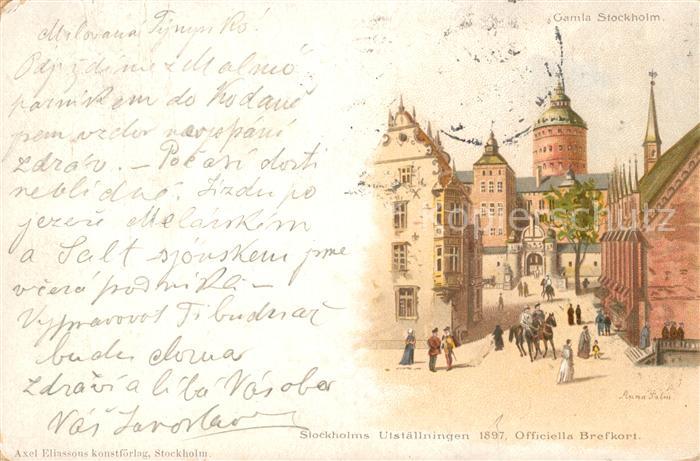 Gamla Stockholm.
Milovaná Týnynko!
z Malmö
parníkem do
jsem vzdor
zdráv. – Počasí dosti
neklidné. Jízdu po
jezeře Melárském
a Salt sjönskem jsme
včera podnikli –
Vypravovat Ti budu až
budu doma
Zdraví a líbá Vás oba
Váš Jaroslav
kopierschutz
Anna Palm
Stockholms Utställningen 1897, Officiella Brefkort.
Axel Eliassons konstförlag, Stockholm.